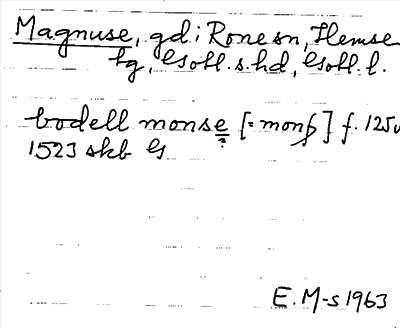 Magnuse, gd i Rone sn, Hemse
tg, Gotl. s. hd, Gotl. l.
bodell monse [= monſ] f. 125v
1523 skb G
E. M-s 1963